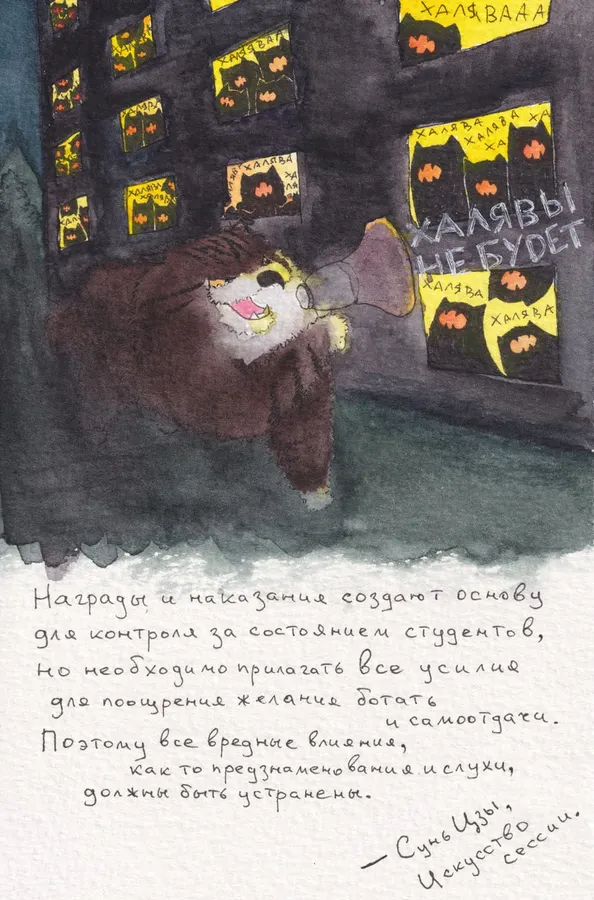 ХАЛЯВААА
ХАЛЯВАА
ХАЛЯВА
ХАЛЯВА
ХА
ХА
ХАЛЯВА
ХАЛЯВА
ХАЛЯВА
ХАЛЯВЫ
НЕ БУДЕТ
ХАЛЯВА
ХАЛЯВА
Награды и наказания создают основу
для контроля за состоянием студентов,
но необходимо прилагать все усилия
для поощрения желания ботать
и самоотдачи.
Поэтому все вредные влияния,
как то предзнаменования и слухи,
должны быть устранены.
— Сунь Цзы,
Искусство
сессии.